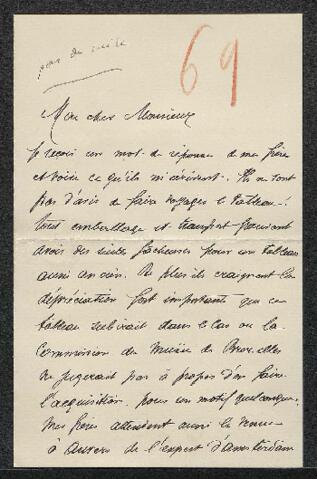 pas de suite
69
Mon cher Monsieur
Je reçois un mot de réponse de mes frères
et voici ce qu'ils m'écrivent. Ils ne sont
pas d'avis de faire voyager le tableau:
tout emballage et transport pouvant
avoir des suites fâcheuses pour un tableau
aussi ancien. De plus ils craignent la
dépréciation fort importante que ce
tableau subirait dans le cas où la
Commission du Musée de Bruxelles
ne jugerait pas à propos d'en faire
l'acquisition pour un motif quelconque.
Mes frères attendent aussi la venue
à Anvers de l'expert d'Amsterdam